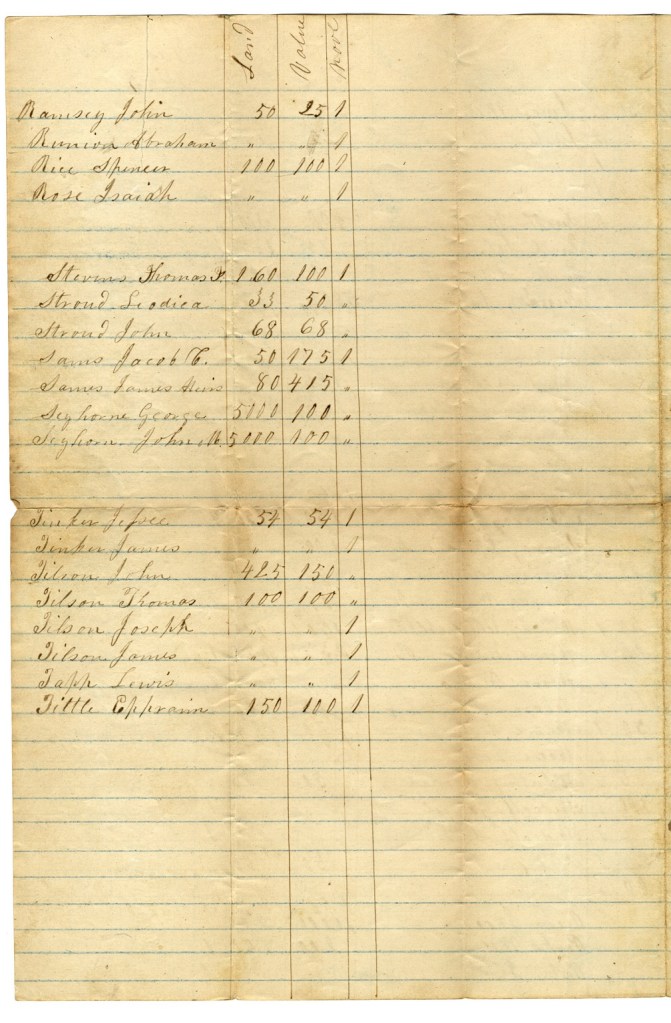 Land Value Pole
Ramsey John 50 25 1
Runion Abraham " " 1
Rice Spencer 100 100 1
Rose Isaiah " " 1
Stevens Thomas 160 100 1
Stroud Leodica 33 50 "
Stroud John 68 68 "
Sams Jacob C. 50 175 1
Sames James Heirs 80 415 "
Seghorne George 5000 100 "
Seghorn John M. 5000 100 "
Tinker Jessee 54 54 1
Tinker James " " 1
Tilson John 425 150 "
Tilson Thomas 100 100 "
Tilson Joseph " " 1
Tilson James " " 1
Tapp Lewis " " 1
Tittle Ephraim 150 100 1